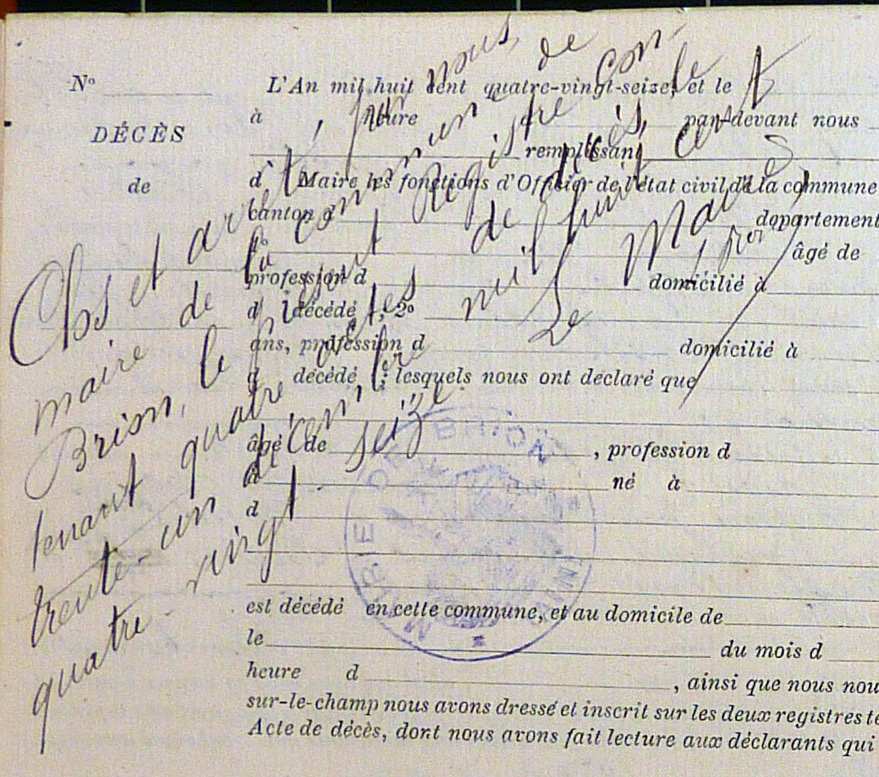 N°
DÉCÈS
de
L'An mil huit cent quatre-vingt-seize, et le
à heure par-devant nous
remplissant
d Maire les fonctions d'Officier de l'état civil de la commune
canton d département
1° âgé de
profession d domicilié à
d décédé , 2°
ans, profession d domicilié à
d décédé ; lesquels nous ont déclaré que
âgé de , profession d
à né à
d
est décédé en cette commune, et au domicile de
le du mois d
heure d , ainsi que nous nou
sur-le-champ nous avons dressé et inscrit sur les deux registres te
Acte de décès, dont nous avons fait lecture aux déclarants qui
Clos et arrêté, par nous,
maire de la commune de
Brion, le présent Registre con-
tenant quatre actes de décès, le
trente-un décembre mil huit cent
quatre-vingt-seize.
Le Maire
MAIRIE DE BRION